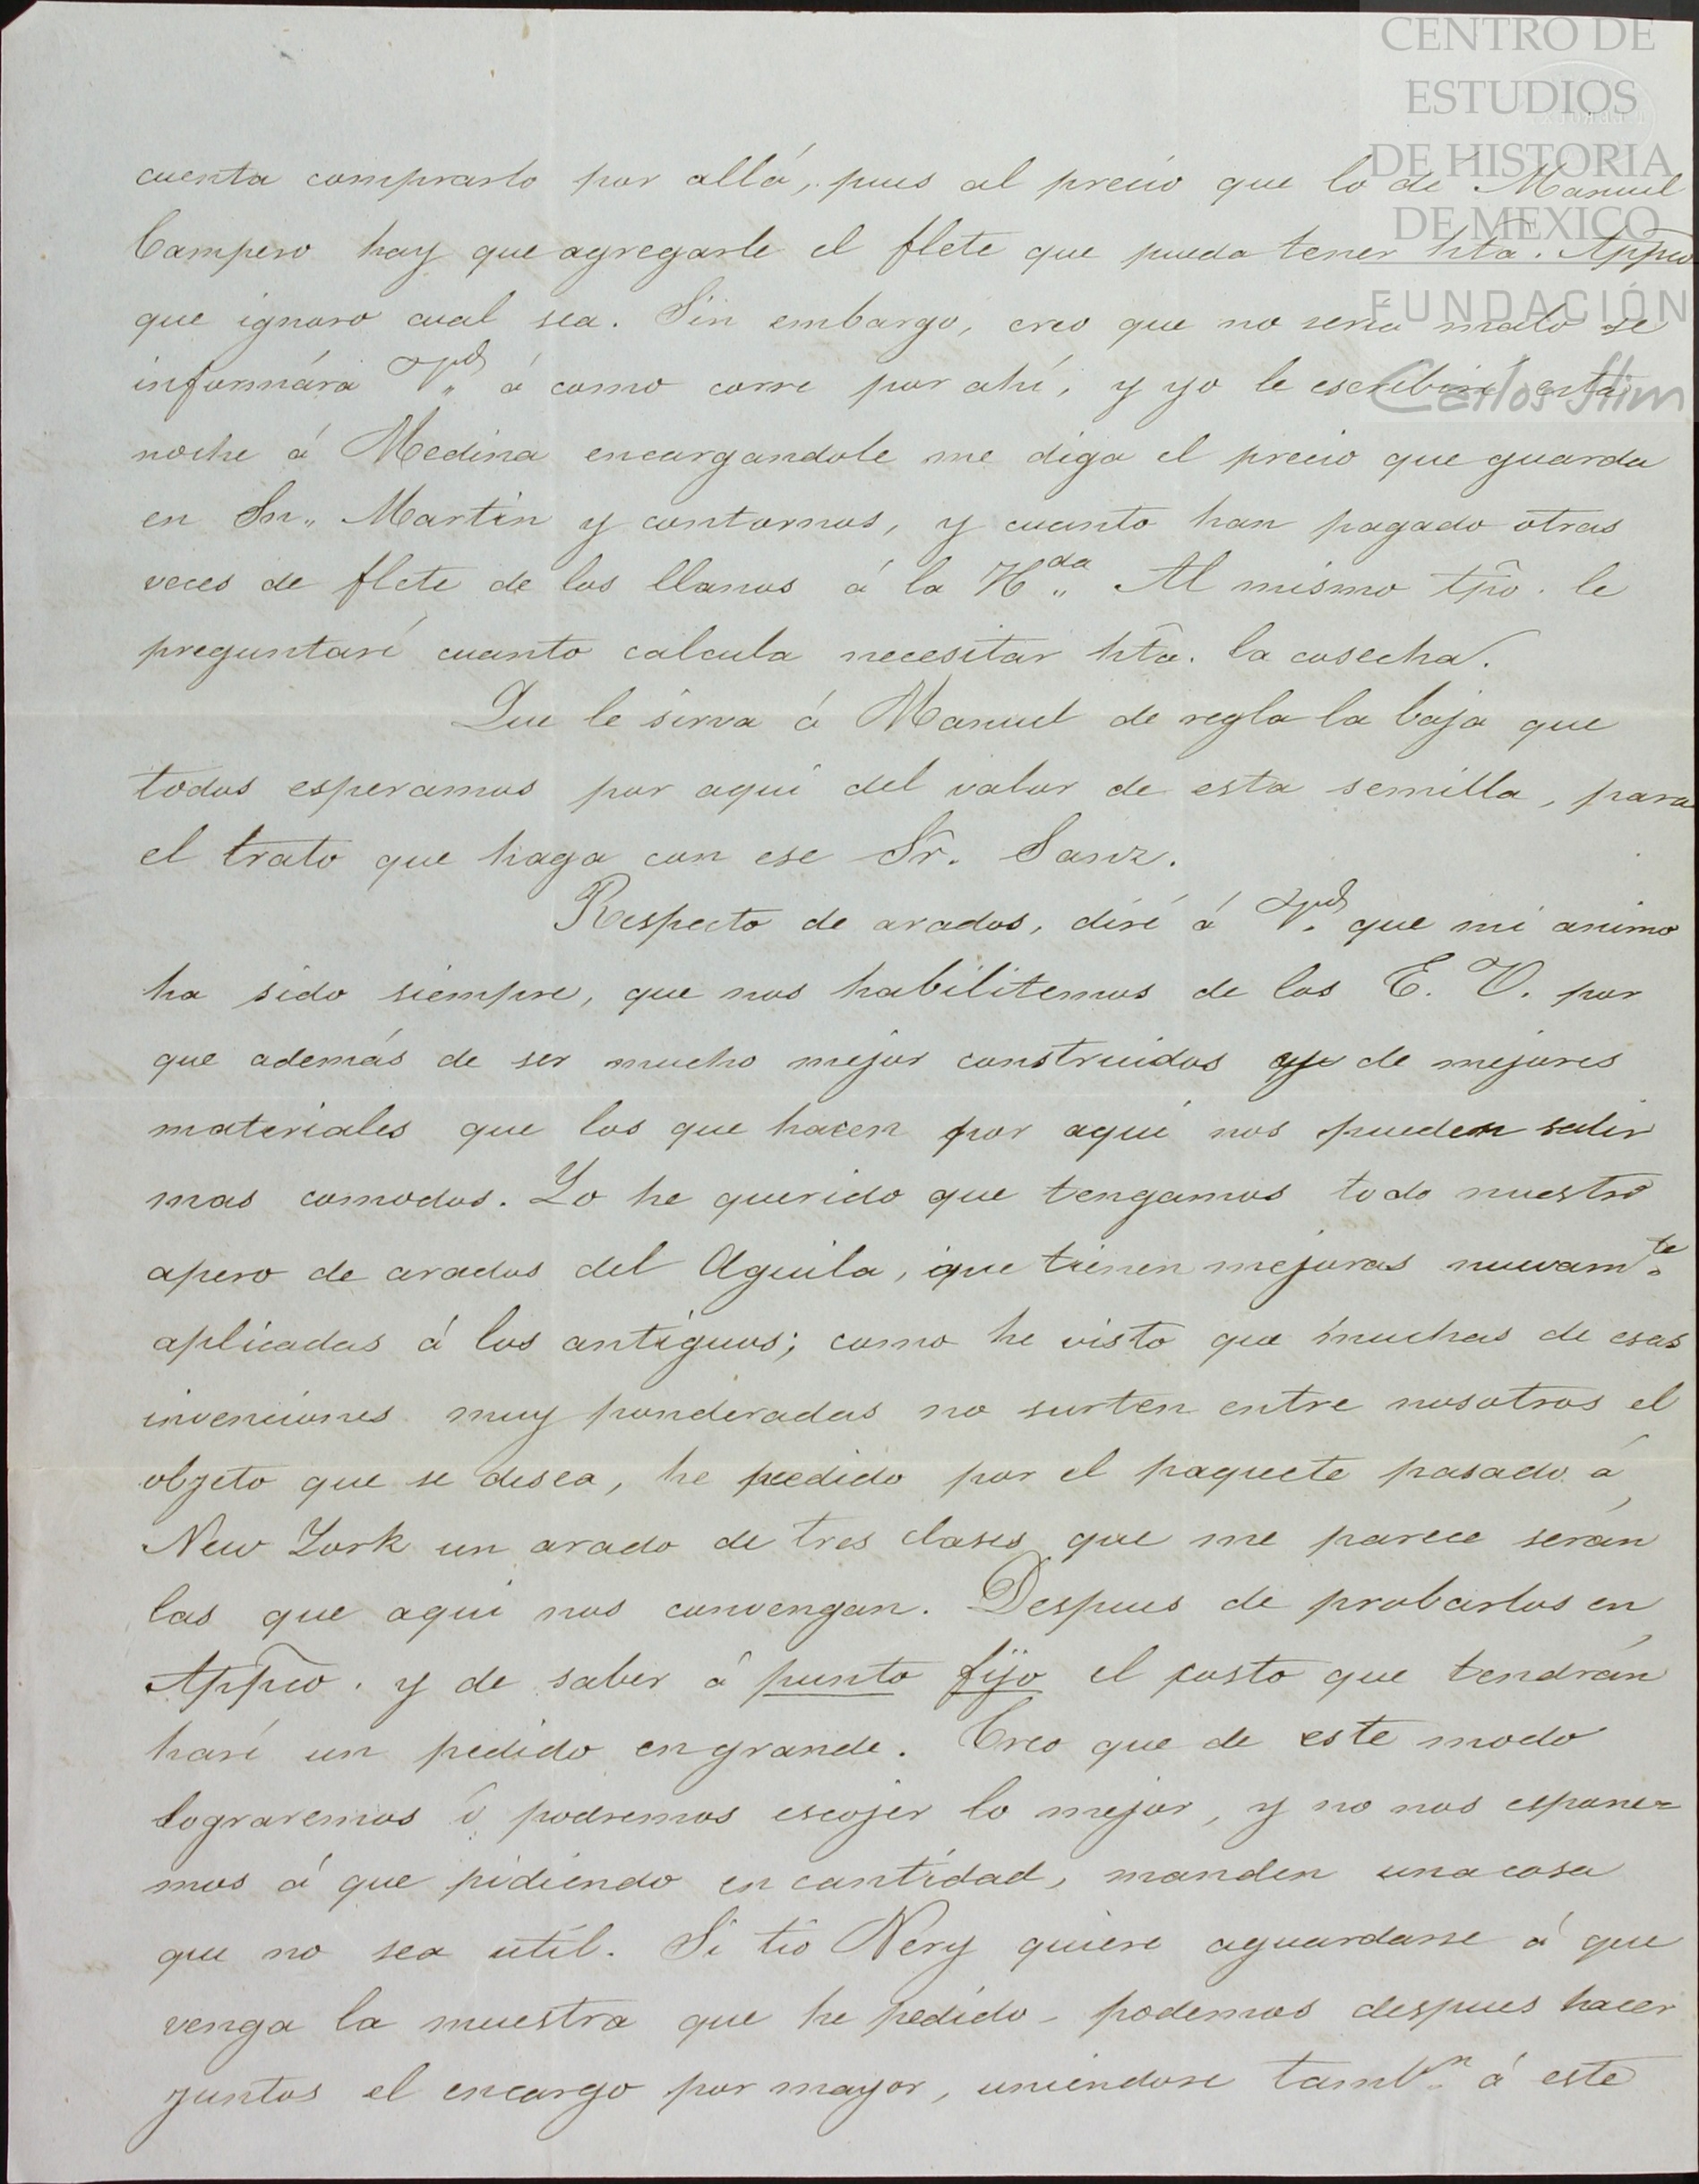 CENTRO DE
ESTUDIOS
DE HISTORIA
DE MEXICO
FUNDACIÓN
Carlos Slim
cuenta comprarlo por allá, pues al precio que lo dé Manuel
Campero hay que agregarle el flete que pueda tener hta. Appco
que ignoro cual sea. Sin embargo, creo que no seria malo se
informára Vd. á como corre por ahí, y yo le escribiré esta
noche á Medina encargandole me diga el precio que guarda
en Sn. Martin y contornos, y cuanto han pagado otras
veces de flete de los llanos á la Hda. Al mismo tpo. le
preguntaré cuanto calcula necesitar hta. la cosecha.
Que le sirva á Manuel de regla la baja que
todos esperamos por aqui del valor de esta semilla, para
el trato que haga con ese Sr. Sanz.
Respecto de arados, diré á Vd. que mi animo
ha sido siempre, que nos habilitemos de los E. U. por
que además de ser mucho mejor construidos y de mejores
materiales que los que hacen por aqui nos pueden salir
mas comodos. Yo he querido que tengamos todo nuestro
apero de arados del Aguila, que tienen mejoras nuevamte.
aplicadas á los antiguos; como he visto que muchas de esas
invenciones muy ponderadas no surten entre nosotros el
objeto que se desea, he pedido por el paquete pasado á
New York un arado de tres clases que me parece serán
las que aqui nos convengan. Despues de probarlos en
Appco. y de saber á punto fijo el costo que tendrán
haré un pedido en grande. Creo que de este modo
lograremos ó podremos escojer lo mejor, y no nos espone=
mos á que pidiendo en cantidad, manden una cosa
que no sea util. Si tio Nery quiere aguardarse á que
venga la muestra que he pedido - podemos despues hacer
juntos el encargo por mayor, uniendose tambn. á este